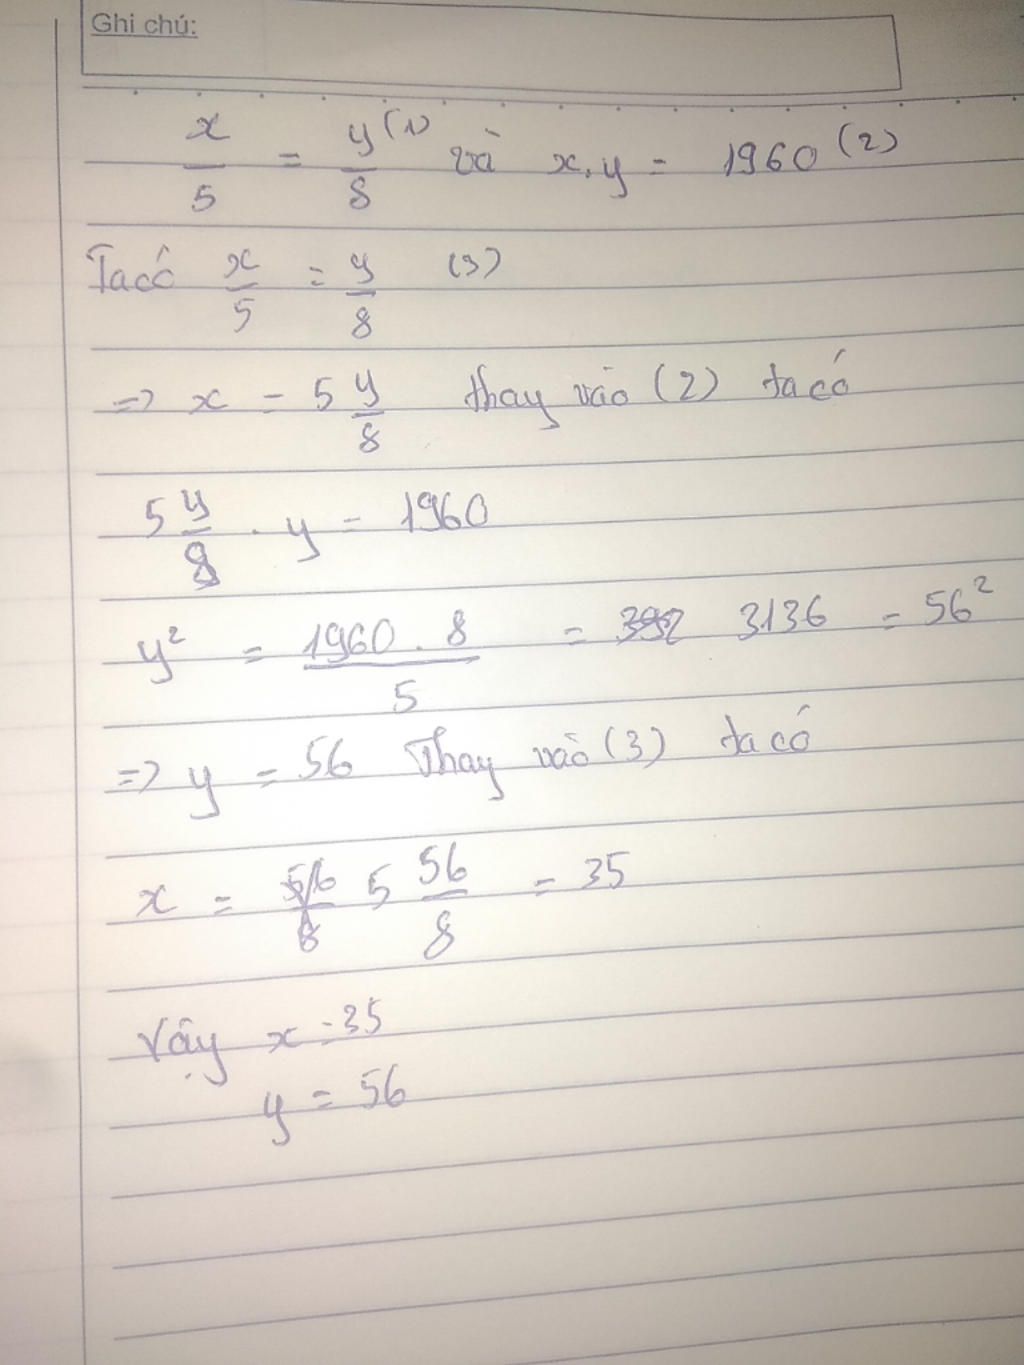 Ghi chú:
x/5 = y/8 (1) và x.y = 1960 (2)
Ta có x/5 = y/8 (3)
=> x = 5 y/8 thay vào (2) ta có
5 y/8 . y = 1960
y² = 1960 . 8 / 5 = 392 3136 = 56²
=> y = 56 Thay vào (3) ta có
x = 56/8 5 56/8 = 35
Vậy x = 35
y = 56